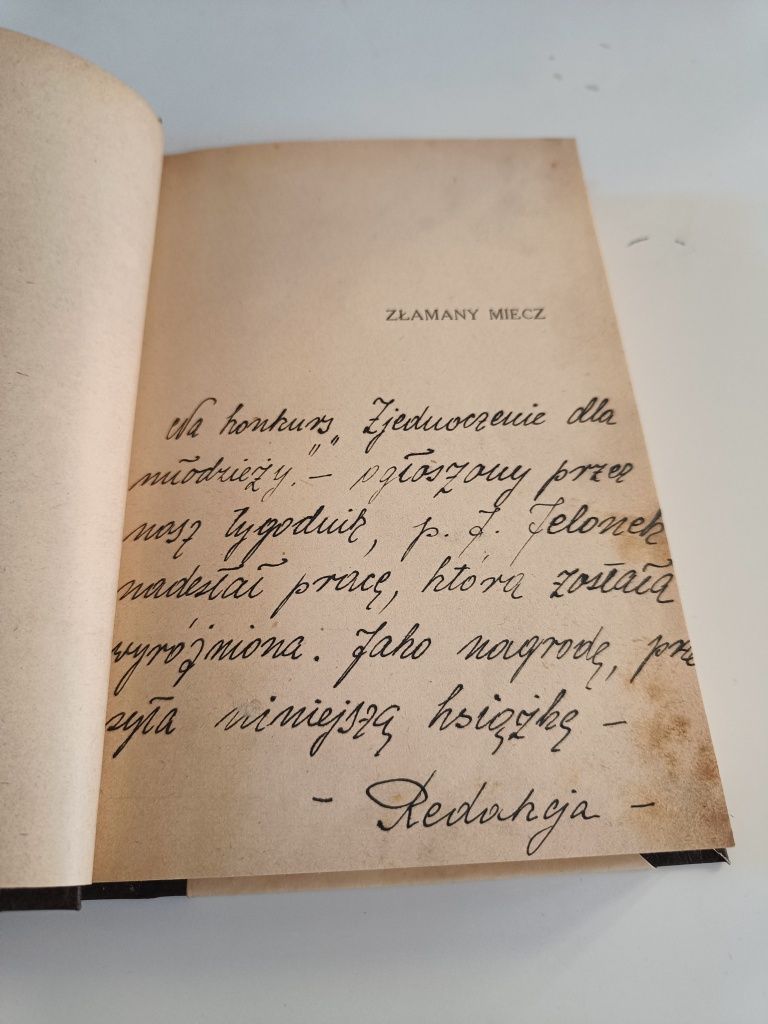 ZŁAMANY MIECZ
Na konkurs „Zjednoczenie dla
młodzieży.” – ogłoszony przez
nasz tygodnik, p. J. Jelonek
nadesłał pracę, która została
wyróżniona. Jako nagrodę, prze
syła niniejszą książkę –
– Redakcja –